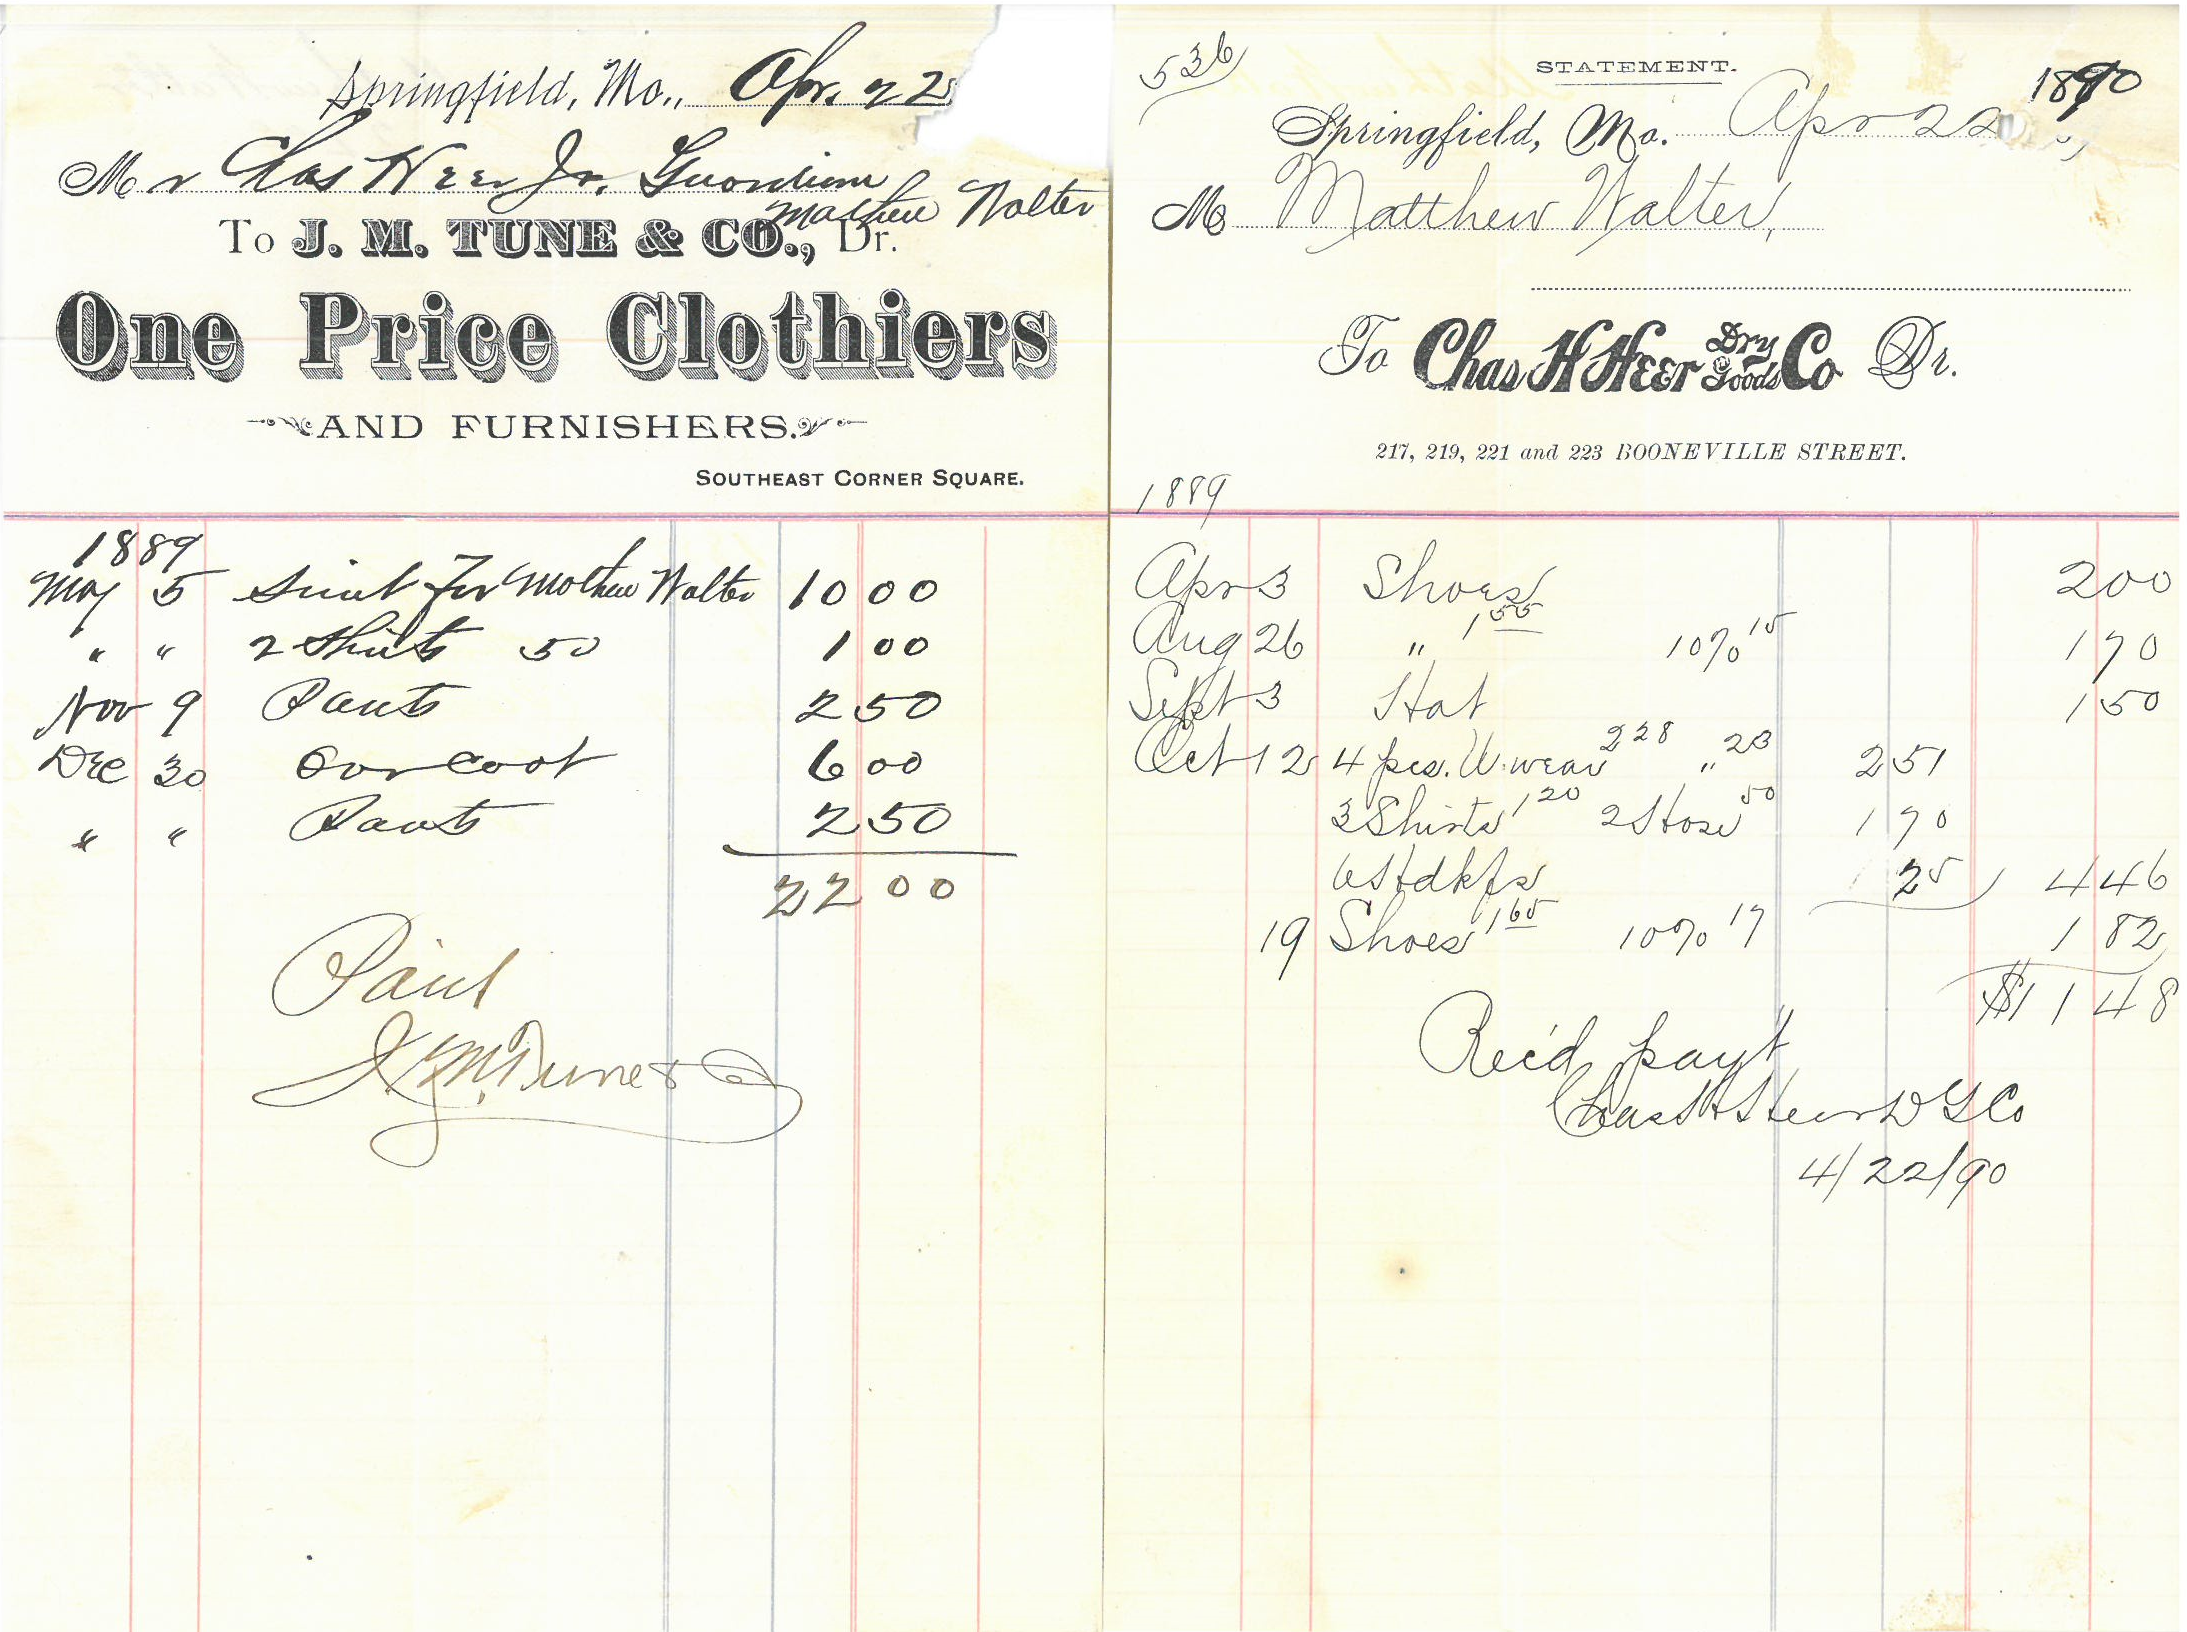 Springfield, Mo., Apr. 22
Mr Chas Heer Jr. Guardian
Mathew Walter
To J. M. TUNE & CO., Dr.
One Price Clothiers
AND FURNISHERS.
SOUTHEAST CORNER SQUARE.
1889
May 5 Suit for Mathew Walter 10 00
" " 2 Shirts 50 1 00
Nov 9 Pants 2 50
Dec 30 Overcoat 6 00
" " Pants 2 50
22 00
Paid
J. M. Tune & Co
536
STATEMENT.
1890
Springfield, Mo. Apr 22
M Matthew Walter,
To Chas H Heer Dry Goods Co Dr.
217, 219, 221 and 223 BOONEVILLE STREET.
1889
Apr 3 Shoes 2 00
Aug 26 " 1 55 10% 15 1 70
Sept 3 Hat 1 50
Oct 12 4 pcs. U. wear 2 28 " 23 2 51
3 Shirts 1 20 2 Hose 50 1 70
6 Hdkfs 25 4 46
19 Shoes 1 65 10% 17 1 82
$11 48
Rec'd payt
Chas H Heer D G Co
4/22/90